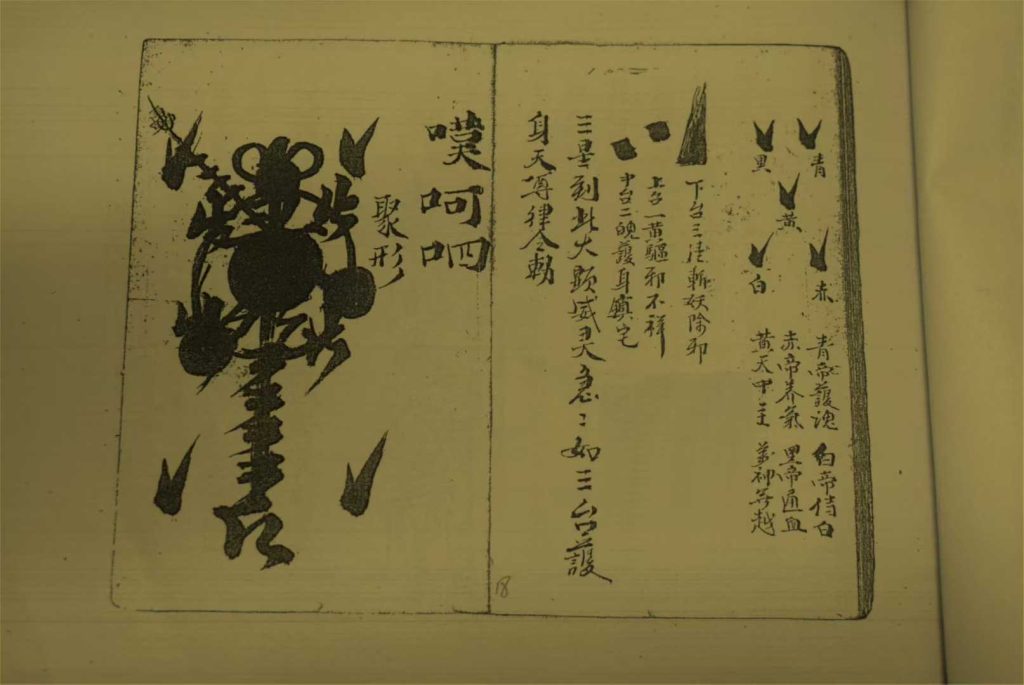 青
黑
黃
赤
白
青帝護魂 白帝侍白
赤帝养氣 黑帝通血
黄天中主 神 越
下台三 斬妖除邪
上台一黄驅邪不祥
中台二魄護身鎮宅
三畢到此大顯威灵急〻如三台護
身天尊律令勅
18
嘆呵呬
聚形